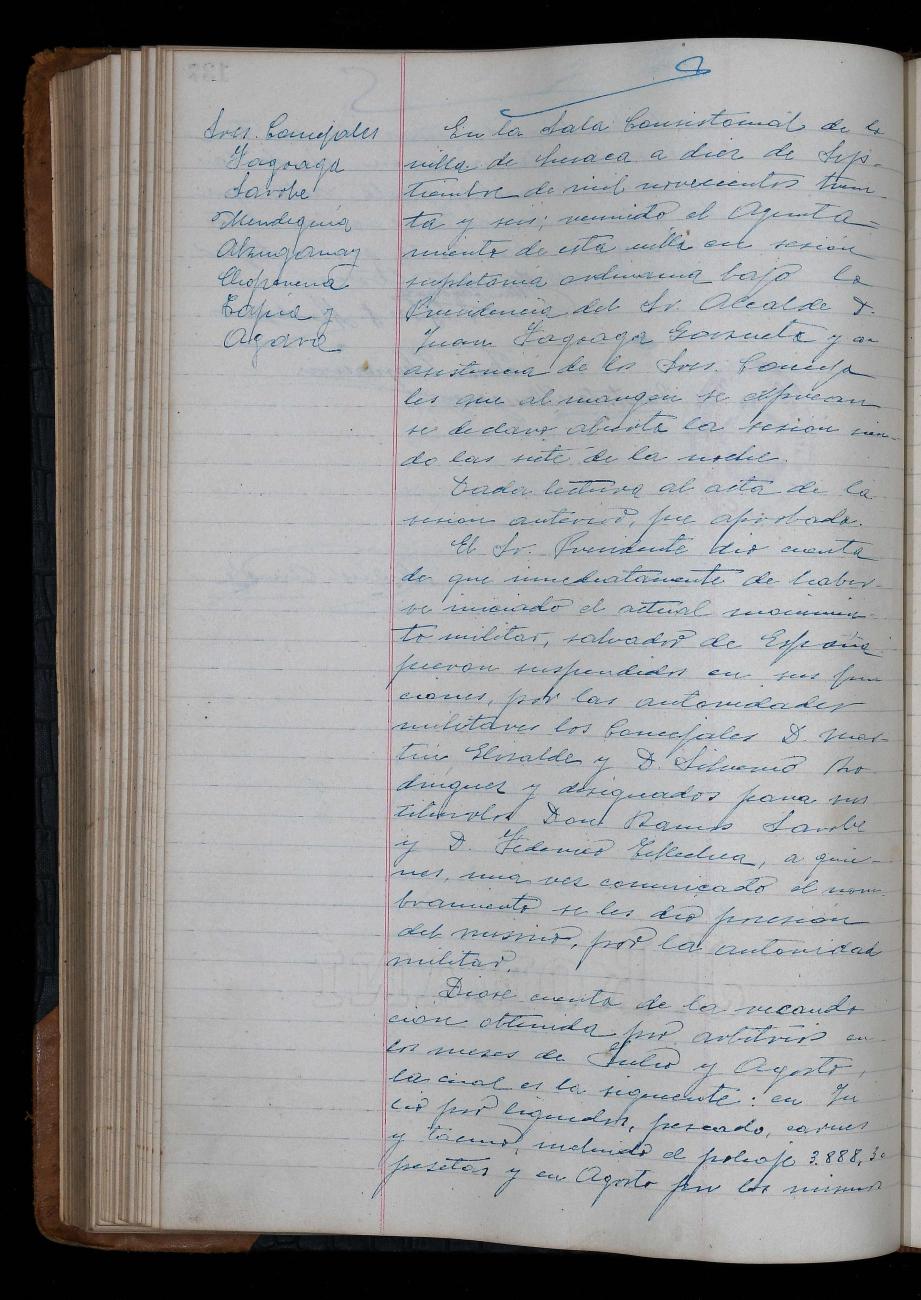 Sres. Concejales
Fagoaga
Sarobe
Mendiguia
Alzuganay
Choperena
Tapia y
Agara
En la Sala Consistorial de la
villa de huraca a diez de Sep-
tiembre de mil novecientos trein
ta y seis; reunido el Ayunta-
miento de esta villa en sesión
supletoria ordinaria bajo la
Presidencia del Sr. Alcalde D.
Juan Fagoaga y a
asistencia de los Sres. Conceja
les que al margen se expresan
se declaro abierta la sesion sien-
do las siete de la noche.
Dada lectura al acta de la
sesion anterior, fue aprobada.
El Sr. Presidente dio cuenta
de que inmediatamente de haber-
se iniciado el actual movimien-
to militar, salvador de España
fueron suspendidos en sus fun
ciones, por las autoridades
militares los Concejales D. Mar-
tin Elizalde y D. Silverio Ro-
driguez y designados para sus
tituirlos Don Ramos Sarobe
y D. Federico Tellechea, a quie-
nes, una vez comunicado el nom-
bramiento se les dio posesión
del mismo, por la autoridad
militar.
Diose cuenta de la recauda
cion obtenida por arbitrios en
los meses de Julio y Agosto,
la cual es la siguiente: en Ju
lio por liquidos, pescado, carnes
y tocino, incluido el poleaje 3.888,30
pesetas y en Agosto por los mismos